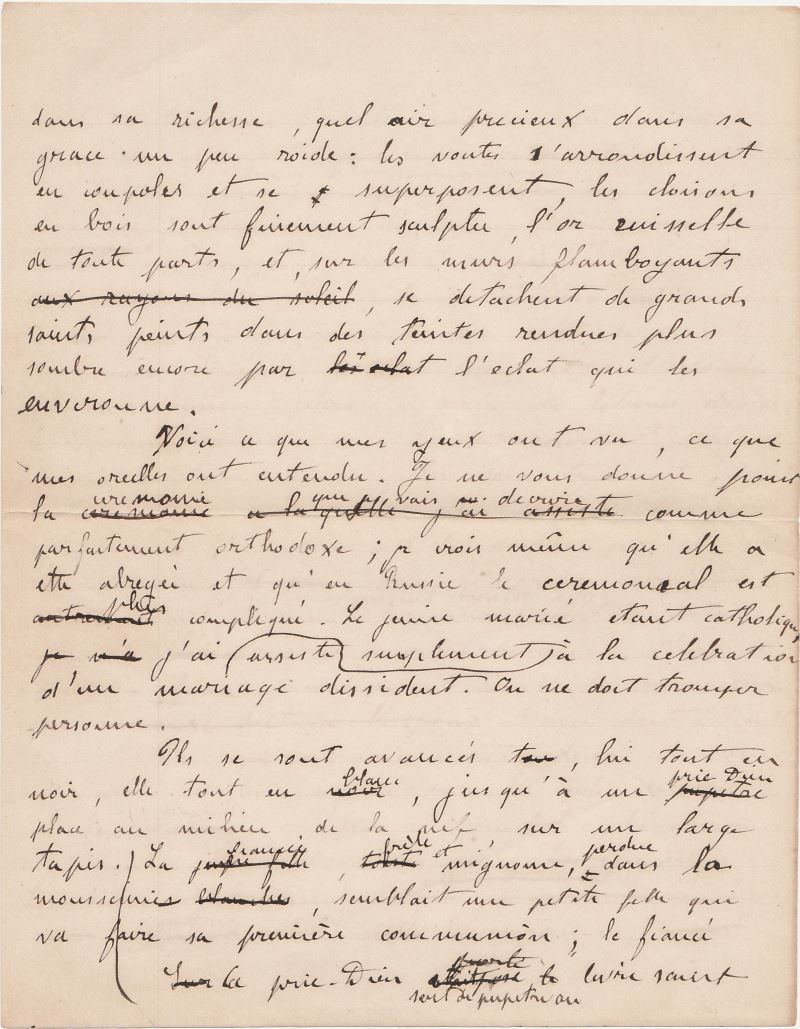 dans sa richesse, quel air precieux dans sa
grace un peu roide : les voutes s'arrondissent
en coupoles et se superposent, les cloisons
en bois sont finement sculptée, l'or ruisselle
de toute parts, et, sur les murs flamboyants
aux rayons du soleil, se detachent de grands
saints peints dans des teintes rendues plus
sombre encore par les eclat l'eclat qui les
environne.
Voici ce que mes yeux ont vu, ce que
mes oreilles ont entendu. Je ne vous donne point
ceremonie que je vais decrire
la ceremonie a laquelle j'ai assisté comme
parfaitement orthodoxe ; je crois même qu'elle a
ette abregée et qu'en Russie le ceremonial est
plus
compliqué. Le jeune marié etant catholique,
je n'a j'ai assisté simplement à la celebration
d'un mariage dissident. On ne doit tromper
personne.
Ils se sont avancés, lui tout en
blanc prie Dieu
noir, elle tout en noir, jusqu'à un pupitre
place au milieu de la nef, sur un large
fiancée frêle et perdue
tapis. La jeune fille, toute mignonne, dans la
mousseline blanche, semblait une petite fille qui
va faire sa première communion ; le fiancé
porte
Sur le prie-Dieu le livre sacret
sert de pupitre au